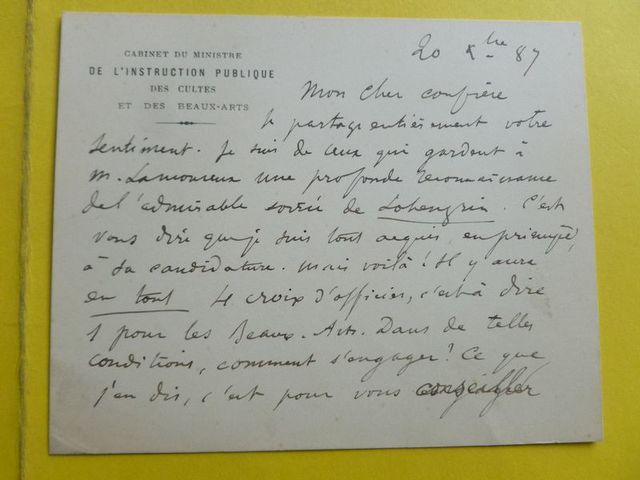 CABINET DU MINISTRE
DE L'INSTRUCTION PUBLIQUE
DES CULTES
ET DES BEAUX-ARTS
20 Xbre 87
Mon cher confrère
Je partage entièrement votre
sentiment. Je suis de ceux qui gardent à
M. Lamoureux une profonde reconnaissance
de l'admirable soirée de Lohengrin. C'est
vous dire que je suis tout acquis, en principe,
à sa candidature. Mais voilà ! Il y aura
en tout 4 croix d'officier, c'est à dire
1 pour les Beaux-Arts. Dans de telles
conditions, comment s'engager ! Ce que
j'en dis, c'est pour vous